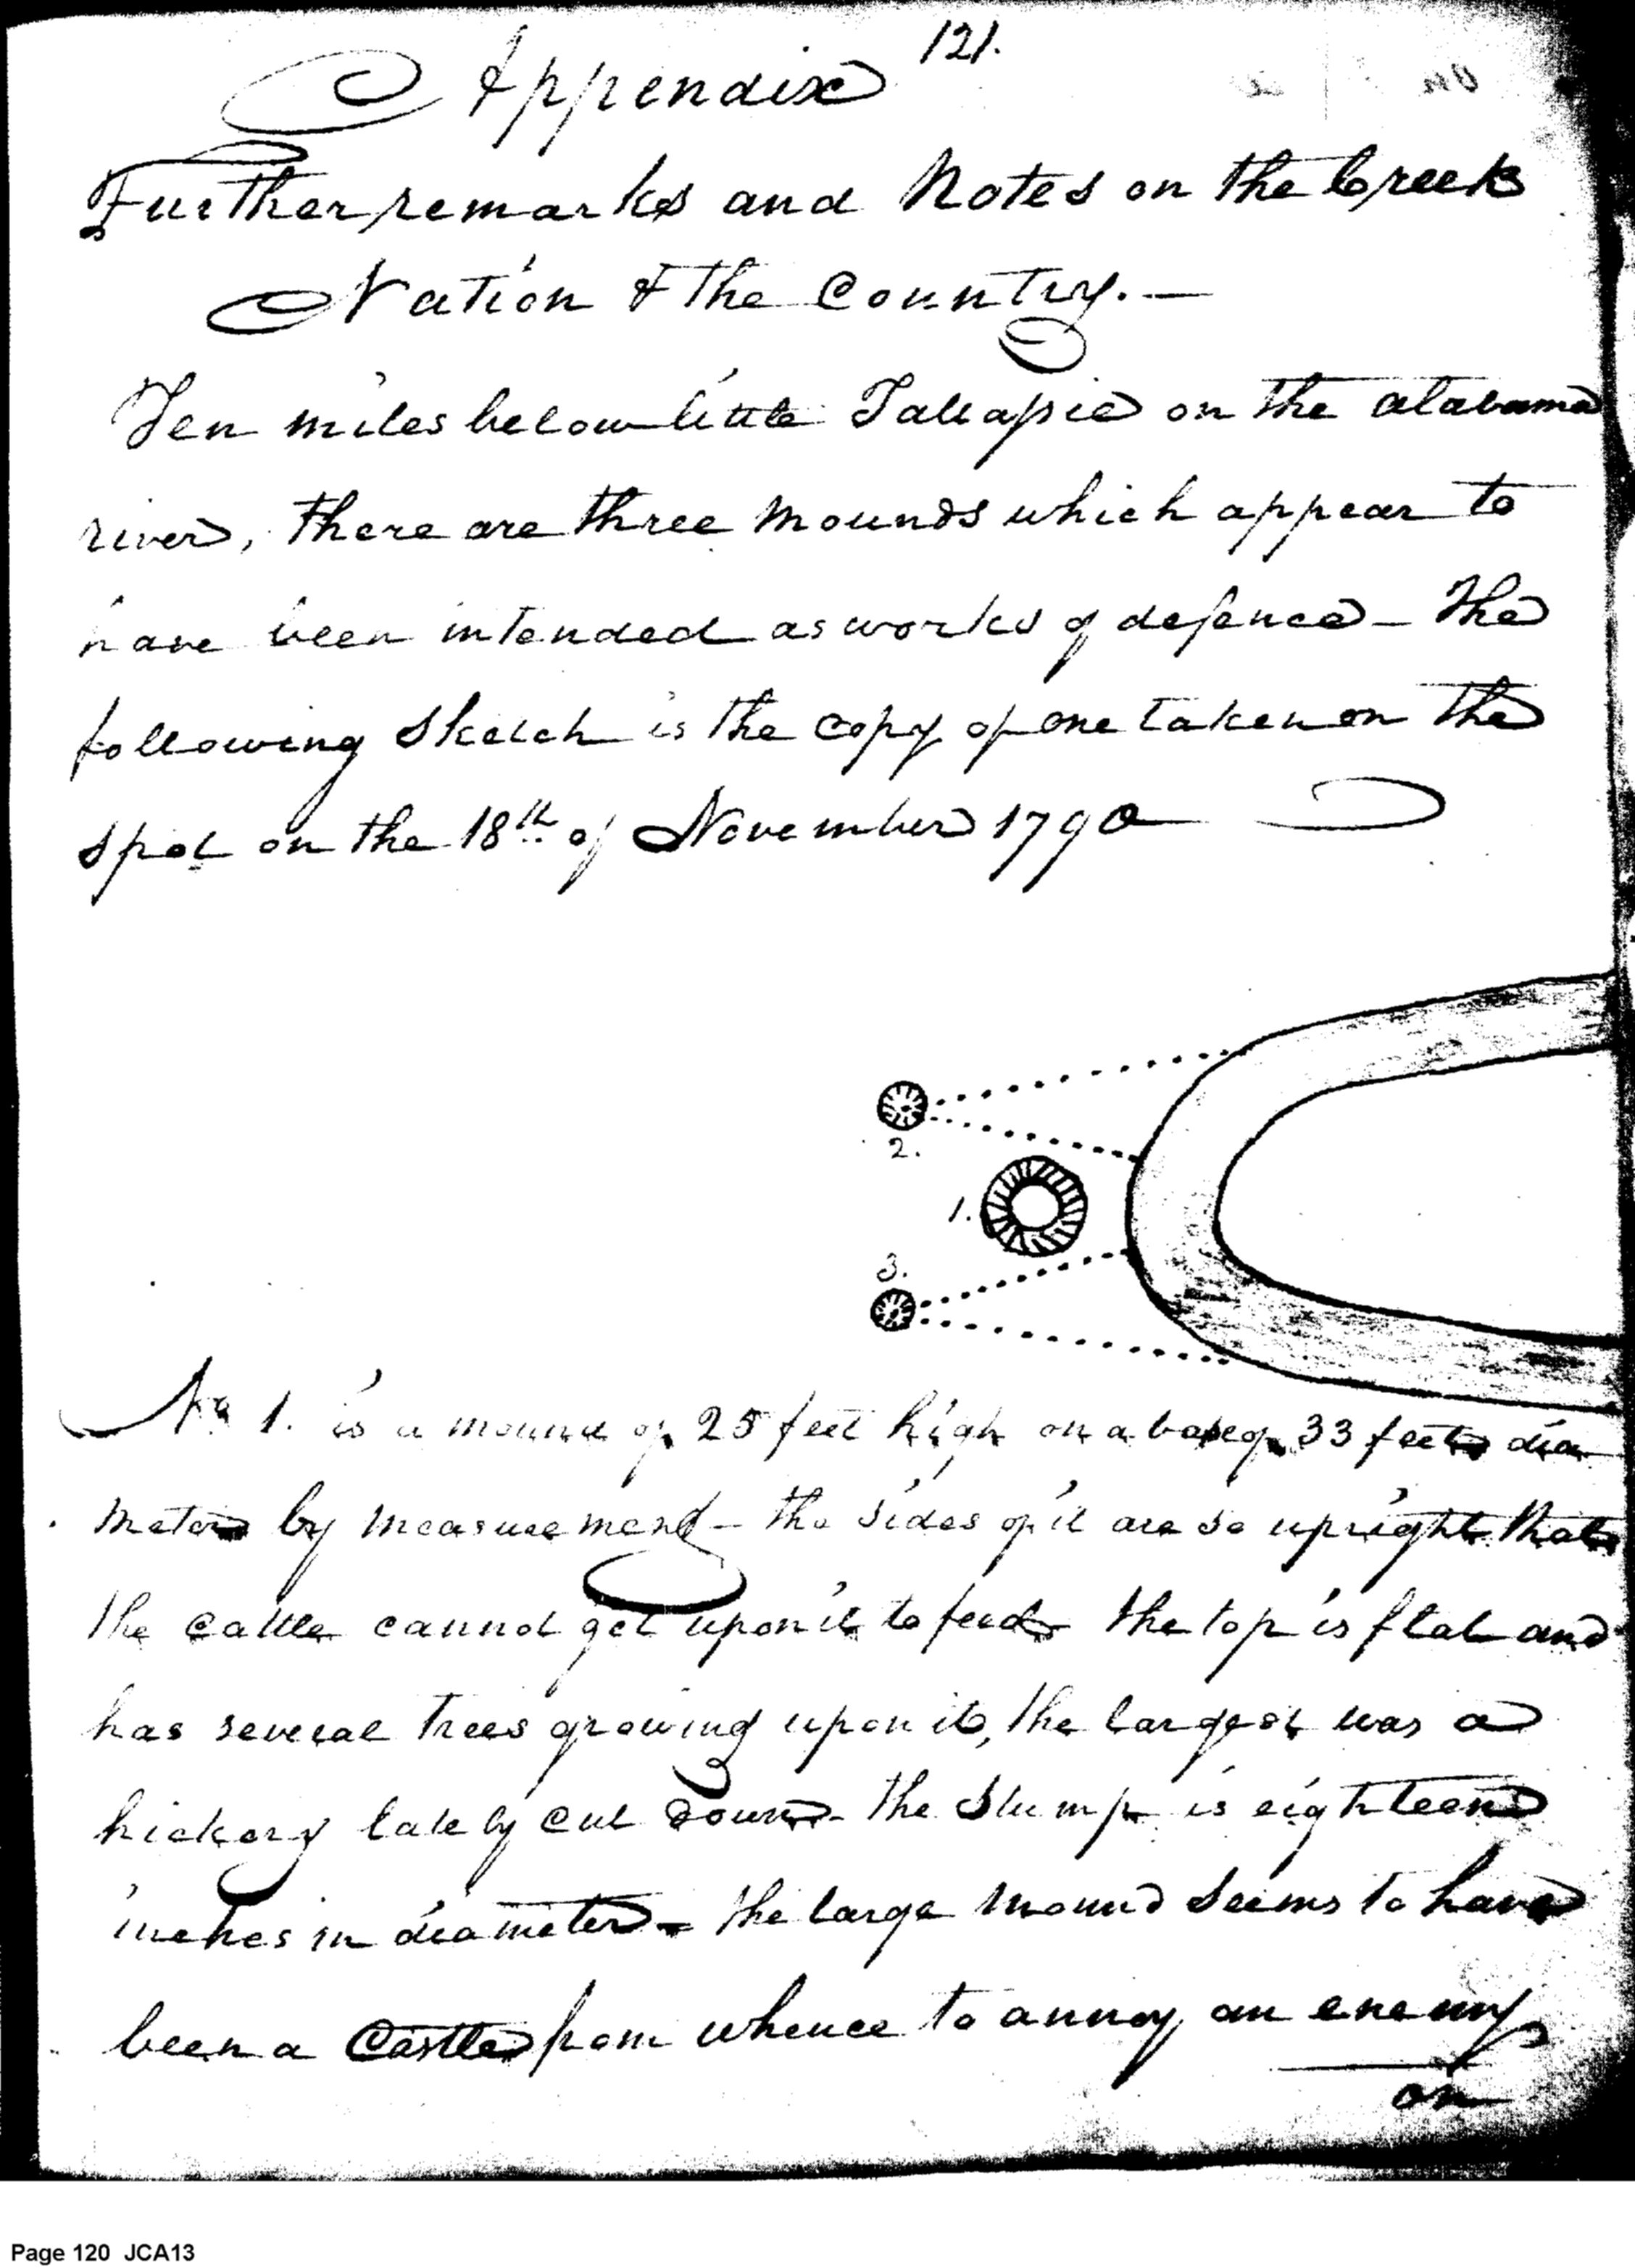 121.
Appendix
Further remarks and Notes on the Creek
Nation & the Country. —
Ten miles below little Tallassie on the alabama
river, there are three Mounds which appear to
have been intended as works of defence — The
following Sketch is the copy of one taken on the
spot on the 18th of November 1790
2.
1.
3.
No 1. is a mound of 25 feet high on a base of 33 feet dia
meter by measurement — the sides of it are so upright that
the cattle cannot get upon it to feed — the top is flat and
has several trees growing upon it, the largest was a
hickory lately cut down — the Stump is eighteen
inches in diameter — the large mound seems to have
been a Castle from whence to annoy an enemy
on
Page 120 JCA13